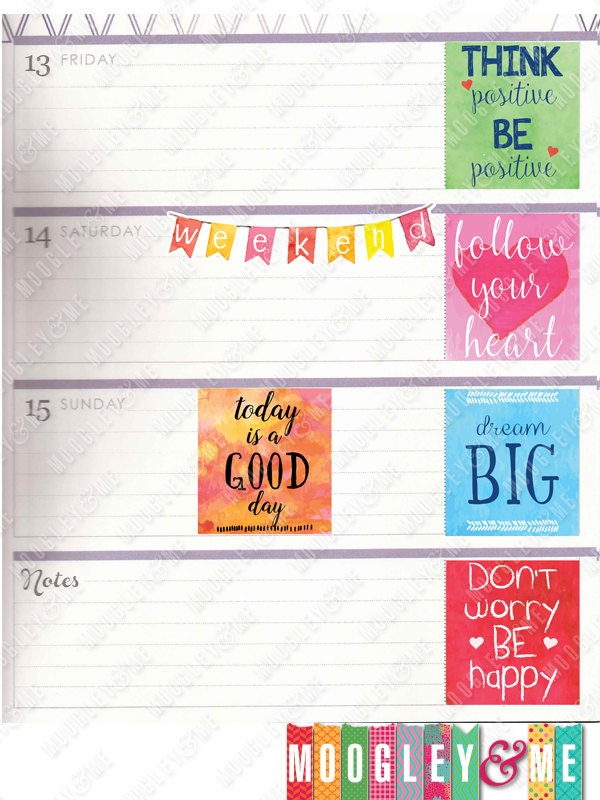 13 FRIDAY
THINK
positive
BE
positive
14 SATURDAY
weekend
follow
your
heart
15 SUNDAY
today
is a
GOOD
day
dream
BIG
Notes
DON'T
worry
BE
happy
MOOGLEY&ME
MOOGLEY&ME